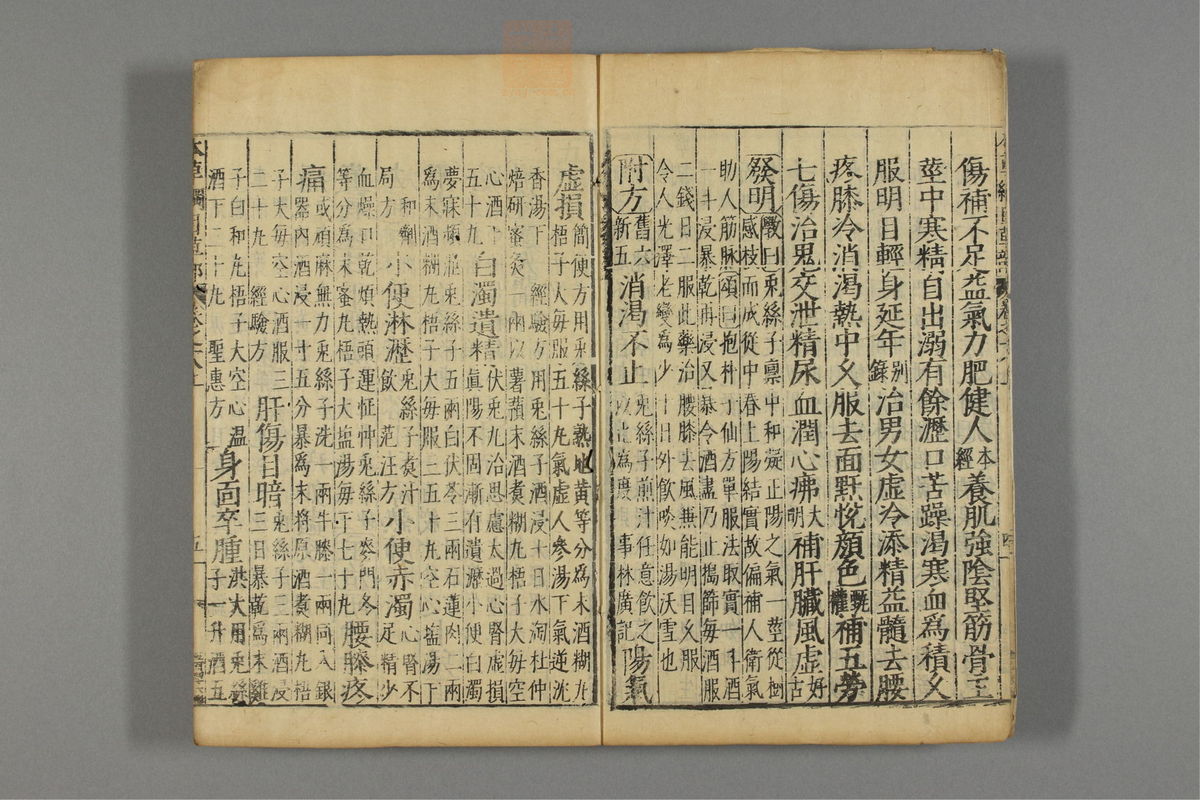 傷補不足益氣力肥健人本經養肌強陰堅筋骨主
莖中寒精自出溺有餘瀝口苦躁渴寒血為積久
服明目輕身延年別錄治男女虛冷添精益髓去腰
疼膝冷消渴熱中久服去面䵟悅顏色甄權補五勞
七傷治鬼交泄精尿血潤心肺大明補肝臟風虛好古
發明斅曰兎絲子稟中和凝正陽之氣一莖從樹
感枝而成從中春上陽結實故偏補人衛氣
助人筋脉頌曰抱朴子仙方單服法取實一斗酒
一斗浸暴乾再浸又暴令酒盡乃止搗篩每酒服
二錢日二服此藥治腰膝去風兼能明目久服
令人光澤老變為少十日外飲啖如湯沃雪也
附方舊六新五消渴不止兎絲子煎汁任意飲之
以止為度事林廣記陽氣
虛損簡便方用兎絲子熟地黃等分為末酒糊丸
梧子大每服五十丸氣虛人參湯下氣逆沈
香湯下經驗方用兎絲子酒浸十日水淘杜仲
焙研蜜炙一兩以薯蕷末酒煮糊丸梧子大每空
心酒下五十丸白濁遺精伏兎丸治思慮太過心腎虛損
真陽不固漸有遺瀝小便白濁
夢寐頻泄兎絲子五兩白茯苓三兩石蓮肉二兩
為末酒糊丸梧子大每服三五十丸空心塩湯下
和劑局方小便淋瀝兎絲子煮汁飲范汪方小便赤濁心腎不足精少
血燥口乾煩熱頭運怔忡兎絲子麥門冬
等分為末蜜丸梧子大塩湯每下七十丸腰膝疼
痛或頑麻無力兎絲子洗一兩牛膝一兩同入銀
器內酒浸一寸五分暴為末將原酒煮糊丸梧
子大每空心酒服三二十丸經驗方肝傷目暗兎絲子三兩酒浸
三日暴乾為末雞
子白和丸梧子大空心溫酒下二十丸聖惠方身面卒腫洪大用兎絲
子一升酒五